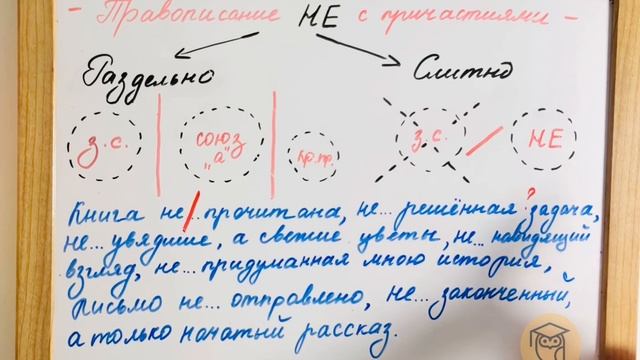 - Правописание НЕ с причастиями -
Раздельно Слитно
з.с. союз „а" кр.пр. з.с. НЕ
Книга не...прочитана, не...решённая ? задача,
не...увядшие, а свежие цветы, не...навидящий
взгляд, не...придуманная мною история,
письмо не...отправлено, не...законченный,
а только начатый рассказ.